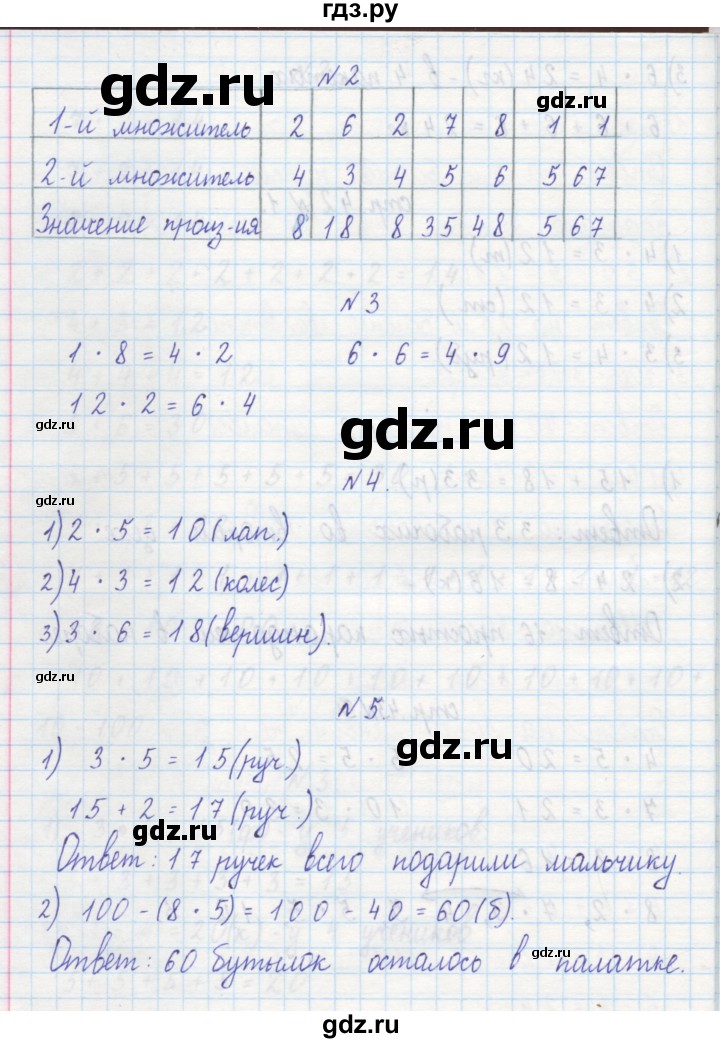 гдз.ру
№2
1-й множитель 2 6 2 7 8 1 1
2-й множитель 4 3 4 5 6 5 67
Значение произ-ия 8 18 8 35 48 5 67
gdz.ru
gdz.ru
gdz.ru
№3
1 · 8 = 4 · 2 6 · 6 = 4 · 9
12 · 2 = 6 · 4
gdz.ru
gdz.ru
№4.
gdz.ru
1) 2 · 5 = 10 (лап.)
2) 4 · 3 = 12 (колес)
3) 3 · 6 = 18 (вершин).
gdz.ru
gdz.ru
№5.
1) 3 · 5 = 15 (руч.)
gdz.ru
15 + 2 = 17 (руч.)
gdz.ru
Ответ: 17 ручек всего подарили мальчику.
2) 100 - (8 · 5) = 100 - 40 = 60 (б).
Ответ: 60 бутылок осталось в палатке.
gdz.ru
gdz.ru
gdz.ru